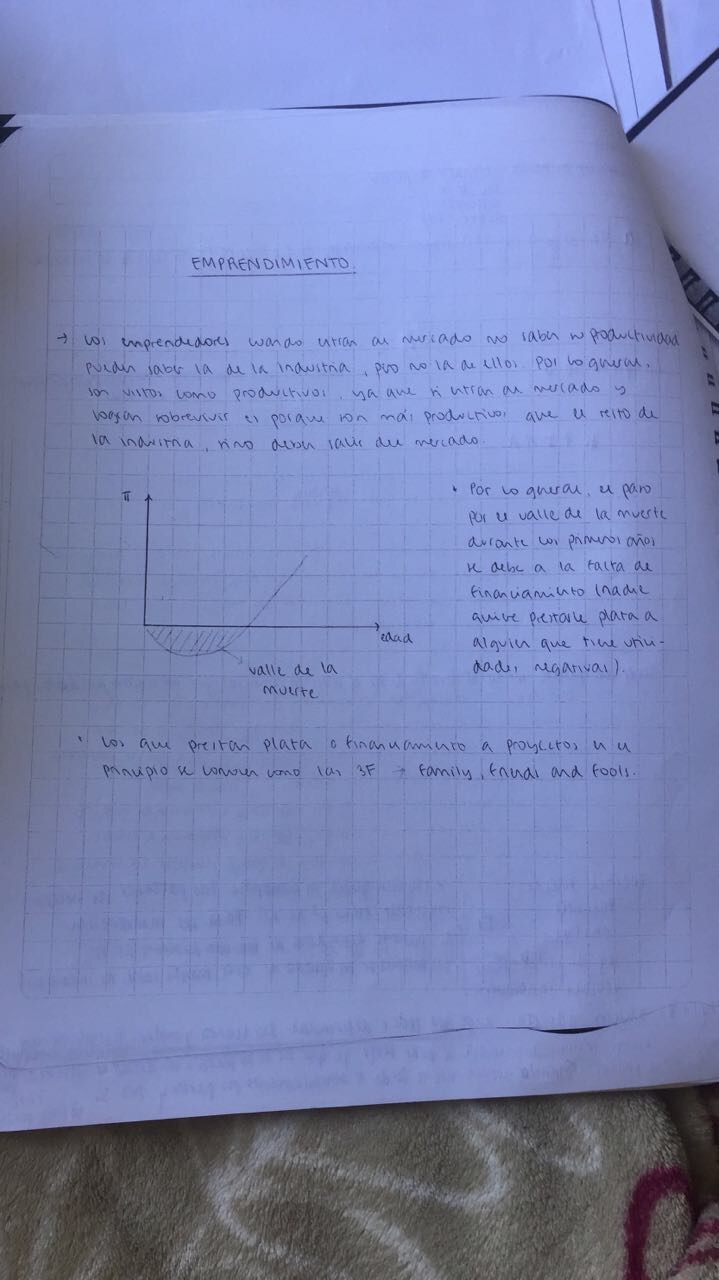 EMPRENDIMIENTO.
→ Los emprendedores cuando entran al mercado no saben su productividad
pueden saber la de la industria, pero no la de ellos. Por lo general,
son vistos como productivos, ya que si entran al mercado y
logran sobrevivir es porque son más productivos que el resto de
la industria, sino deben salir del mercado.
π
edad
valle de la
muerte
• Por lo general, el paso
por el valle de la muerte
durante los primeros años
se debe a la falta de
financiamiento (nadie
quiere prestarle plata a
alguien que tiene utili-
dades negativas).
• Los que prestan plata o financiamiento a proyectos en el
principio se conocen como las 3F → Family, friends and fools.